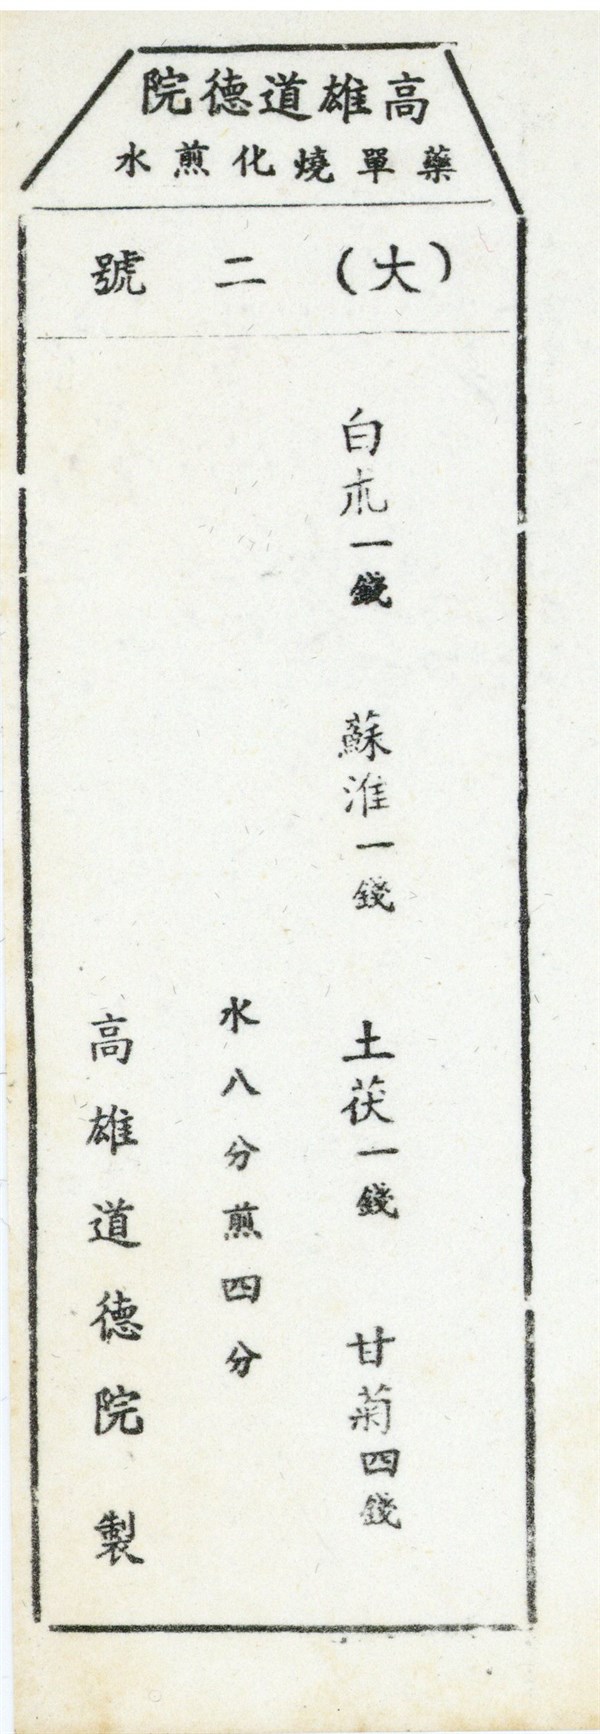 高雄道德院
藥單燒化煎水
(大)二號
白朮一錢 蘇淮一錢 土茯一錢 甘菊四錢
水八分煎四分
高雄道德院製